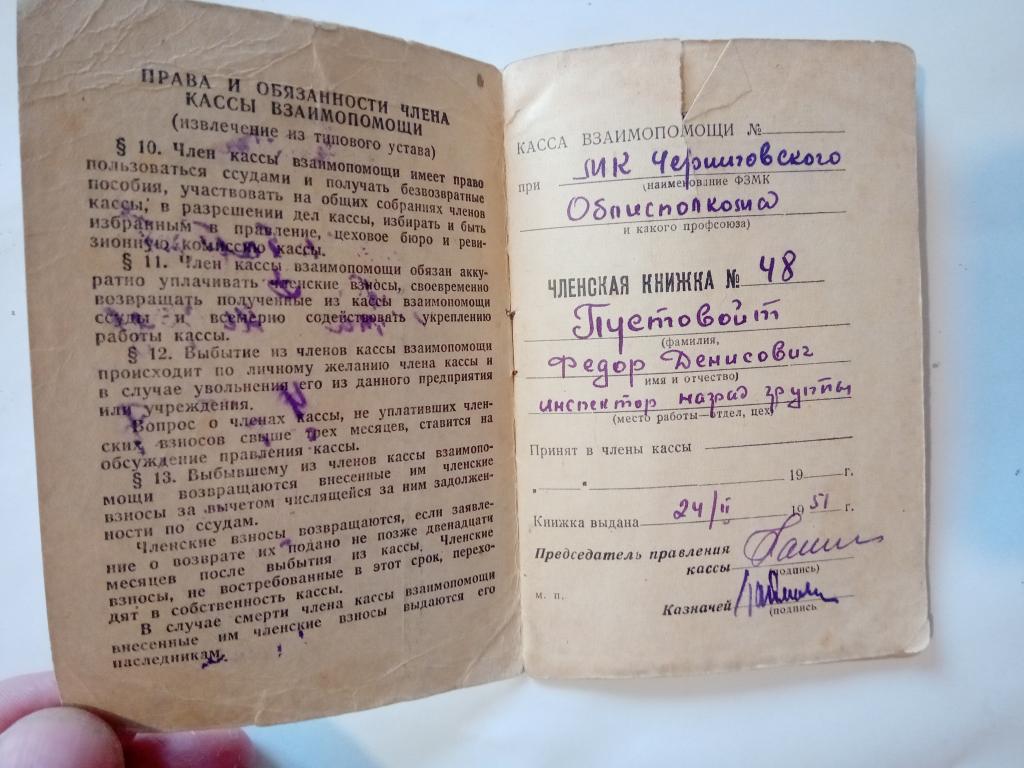 ПРАВА И ОБЯЗАННОСТИ ЧЛЕНА
КАССЫ ВЗАИМОПОМОЩИ
(извлечение из типового устава)
§ 10. Член кассы взаимопомощи имеет право
пользоваться ссудами и получать безвозвратные
пособия, участвовать на общих собраниях членов
кассы, в разрешении дел кассы, избирать и быть
избранным в правление, цеховое бюро и реви-
зионную комиссию кассы.
§ 11. Член кассы взаимопомощи обязан акку-
ратно уплачивать членские взносы, своевременно
возвращать полученные из кассы взаимопомощи
ссуды и всемерно содействовать укреплению
работы кассы.
§ 12. Выбытие из членов кассы взаимопомощи
происходит по личному желанию члена кассы и
в случае увольнения его из данного предприятия
или учреждения.
Вопрос о членах кассы, не уплативших член-
ских взносов свыше трех месяцев, ставится на
обсуждение правления кассы.
§ 13. Выбывшему из членов кассы взаимопо-
мощи возвращаются внесенные им членские
взносы за вычетом числящейся за ним задолжен-
ности по ссудам.
Членские взносы возвращаются, если заявле-
ние о возврате их подано не позже двенадцати
месяцев после выбытия из кассы. Членские
взносы, не востребованные в этот срок, перехо-
дят в собственность кассы.
В случае смерти члена кассы взаимопомощи
внесенные им членские взносы выдаются его
наследникам.
КАССА ВЗАИМОПОМОЩИ №
при МК Черниговского
(наименование ФЗМК
Облисполкома
и какого профсоюза)
ЧЛЕНСКАЯ КНИЖКА № 48
Пустовойт
(фамилия,
Федор Денисович
имя и отчество)
инспектор наград группы
(место работы—отдел, цех)
Принят в члены кассы
" " 19 г.
Книжка выдана 24/II 1951 г.
Председатель правления
кассы
(подпись)
м. п.
Казначей
(подпись